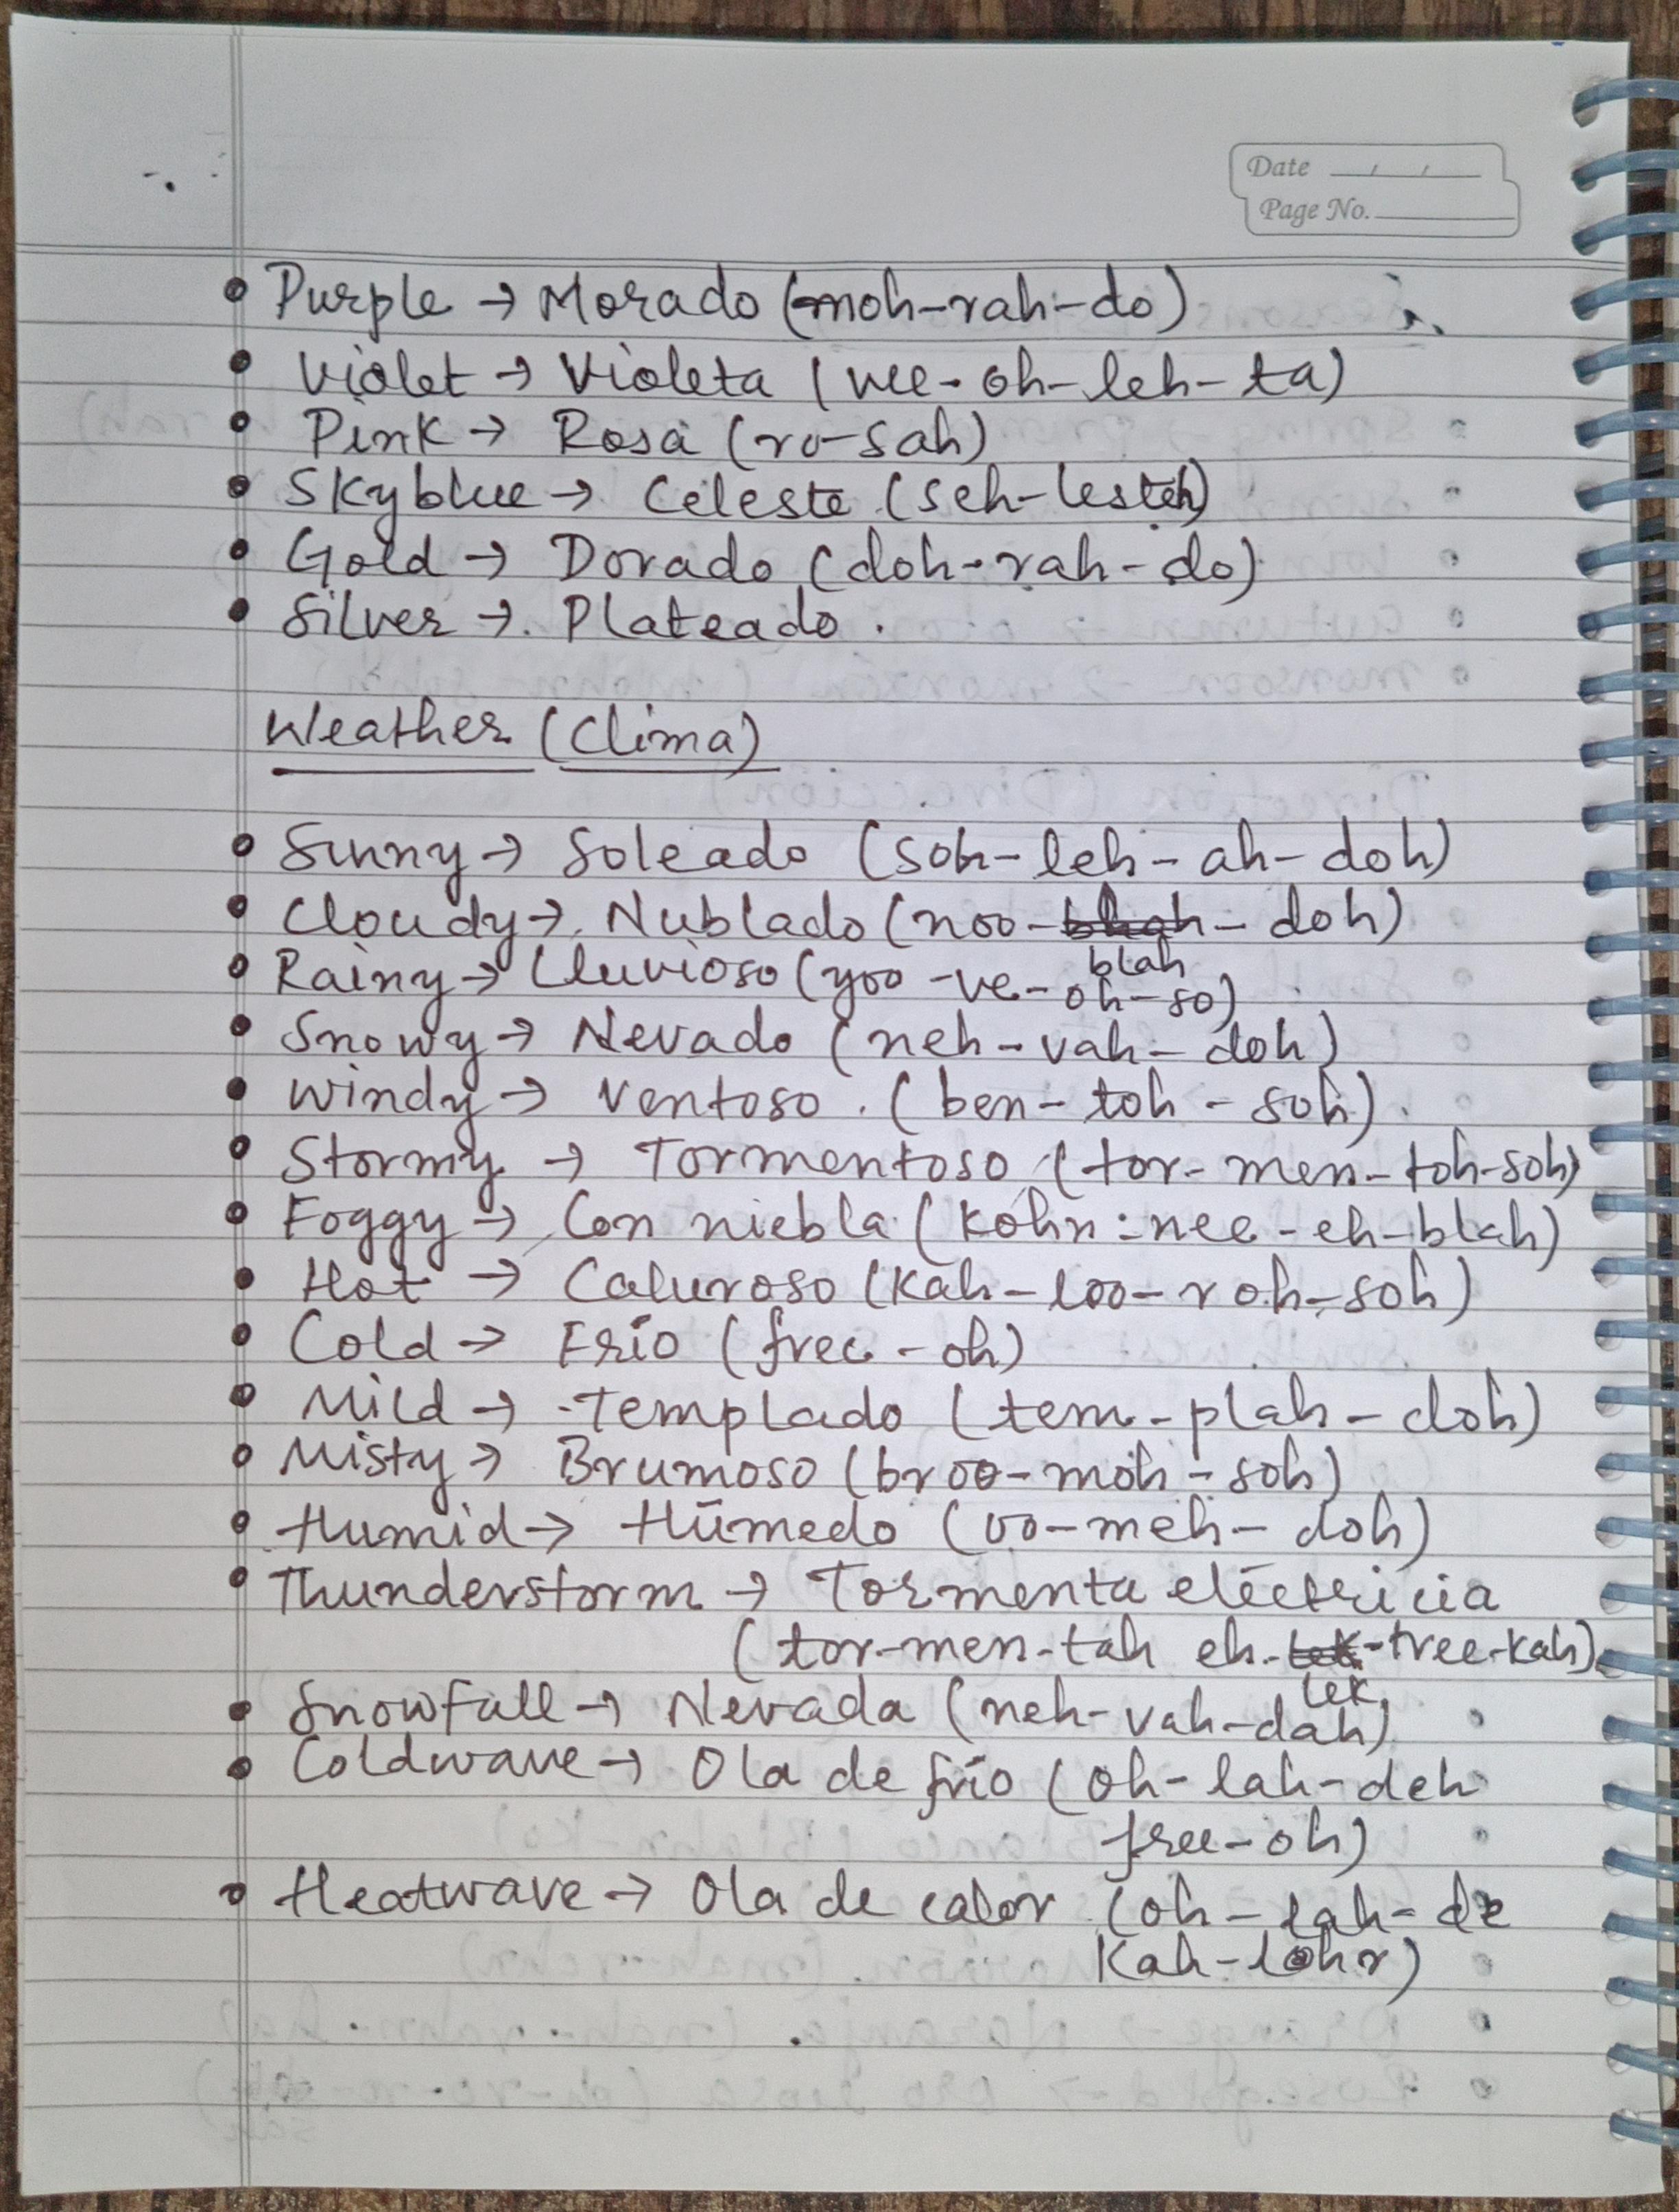 Date __/__/__
Page No.
• Purple → Morado (moh-rah-do)
• Violet → Violeta (vee-oh-leh-ta)
• Pink → Rosa (ro-sah)
• Skyblue → Celeste (seh-lesteh)
• Gold → Dorado (doh-rah-do)
• Silver → Plateado.
Weather (Clima)
• Sunny → Soleado (soh-leh-ah-doh)
• Cloudy → Nublado (noo-blah-doh)
• Rainy → Lluvioso (yoo-ve-oh-so)
• Snowy → Nevado (neh-vah-doh)
• Windy → Ventoso. (ben-toh-soh).
• Stormy → Tormentoso (tor-men-toh-soh)
• Foggy → Con niebla (kohn-nee-eh-blah)
• Hot → Caluroso (Kah-loo-roh-soh)
• Cold → Frío (free-oh)
• Mild → Templado (tem-plah-doh)
• Misty → Brumoso (broo-moh-soh)
• Humid → Húmedo (oo-meh-doh)
• Thunderstorm → Tormenta eléctricia
(tor-men-tah eh-lek-tree-kah)
• Snowfall → Nevada (neh-vah-dah)
• Coldwave → Ola de frío (oh-lah-deh
free-oh)
• Heatwave → Ola de calor (oh-lah-de
Kah-lohr)